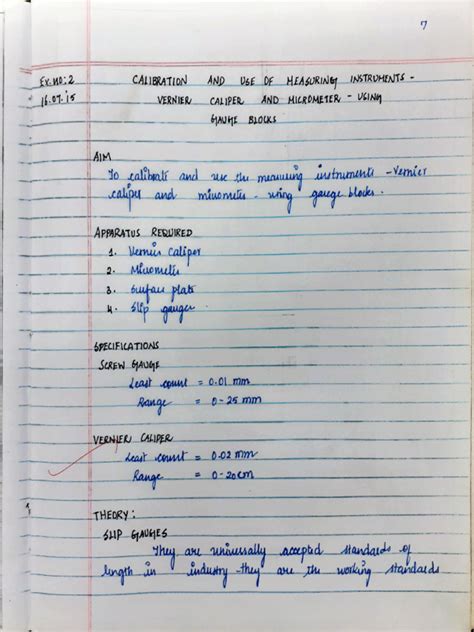 7
Ex.no:2
16.07.'15
CALIBRATION AND USE OF MEASURING INSTRUMENTS -
VERNIER CALIPER AND MICROMETER - USING
GAUGE BLOCKS
AIM
To calibrate and use the measuring instruments - Vernier
caliper and micrometer - using gauge blocks.
APPARATUS REQUIRED
1. Vernier caliper
2. Micrometer
3. Surface plate
4. Slip gauges
SPECIFICATIONS
SCREW GAUGE
Least count = 0.01 mm
Range = 0-25 mm
VERNIER CALIPER
Least count = 0.02 mm
Range = 0-20cm
THEORY:
SLIP GAUGES
They are universally accepted standards of
length in industry - they are the working standards